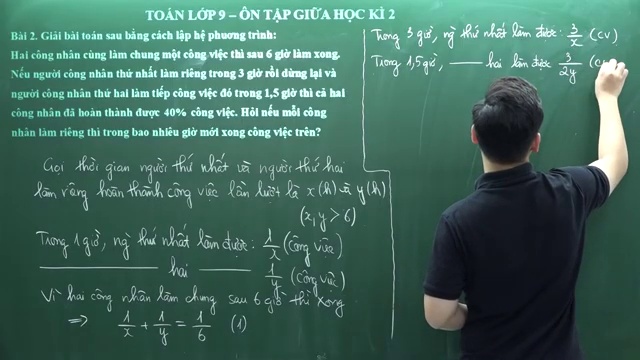 TOÁN LỚP 9 – ÔN TẬP GIỮA HỌC KÌ 2
Bài 2. Giải bài toán sau bằng cách lập hệ phương trình:
Hai công nhân cùng làm chung một công việc thì sau 6 giờ làm xong.
Nếu người công nhân thứ nhất làm riêng trong 3 giờ rồi dừng lại và
người công nhân thứ hai làm tiếp công việc đó trong 1,5 giờ thì cả hai
công nhân đã hoàn thành được 40% công việc. Hỏi nếu mỗi công
nhân làm riêng thì trong bao nhiêu giờ mới xong công việc trên?
Gọi thời gian người thứ nhất và người thứ hai
làm riêng hoàn thành công việc lần lượt là x(h) và y(h)
(x, y > 6)
Trong 1 giờ, ng thứ nhất làm được: 1/x (công việc)
——— hai ——— 1/y (công việc)
Vì hai công nhân làm chung sau 6 giờ thì xong
⟹ 1/x + 1/y = 1/6 (1)
Trong 3 giờ, ng thứ nhất làm được: 3/x (CV)
Trong 1,5 giờ, —— hai làm được 3/2y